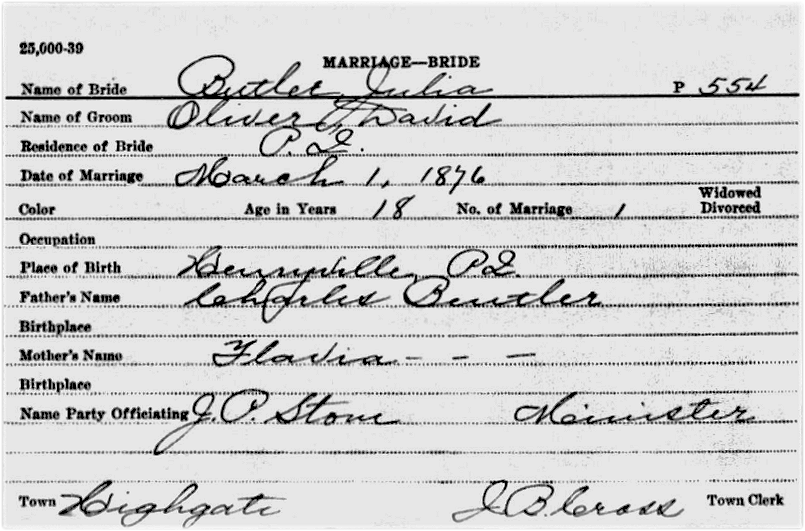 25,000-39
MARRIAGE—BRIDE
Name of Bride Butler, Julia P 554
Name of Groom Oliver David
Residence of Bride P.Q.
Date of Marriage March 1, 1876
Color Age in Years 18 No. of Marriage 1 Widowed Divorced
Occupation
Place of Birth Henryville, P.Q.
Father's Name Charles Butler
Birthplace
Mother's Name Flavia - - -
Birthplace
Name Party Officiating J.P. Stone Minister
Town Highgate J.B. Cross Town Clerk